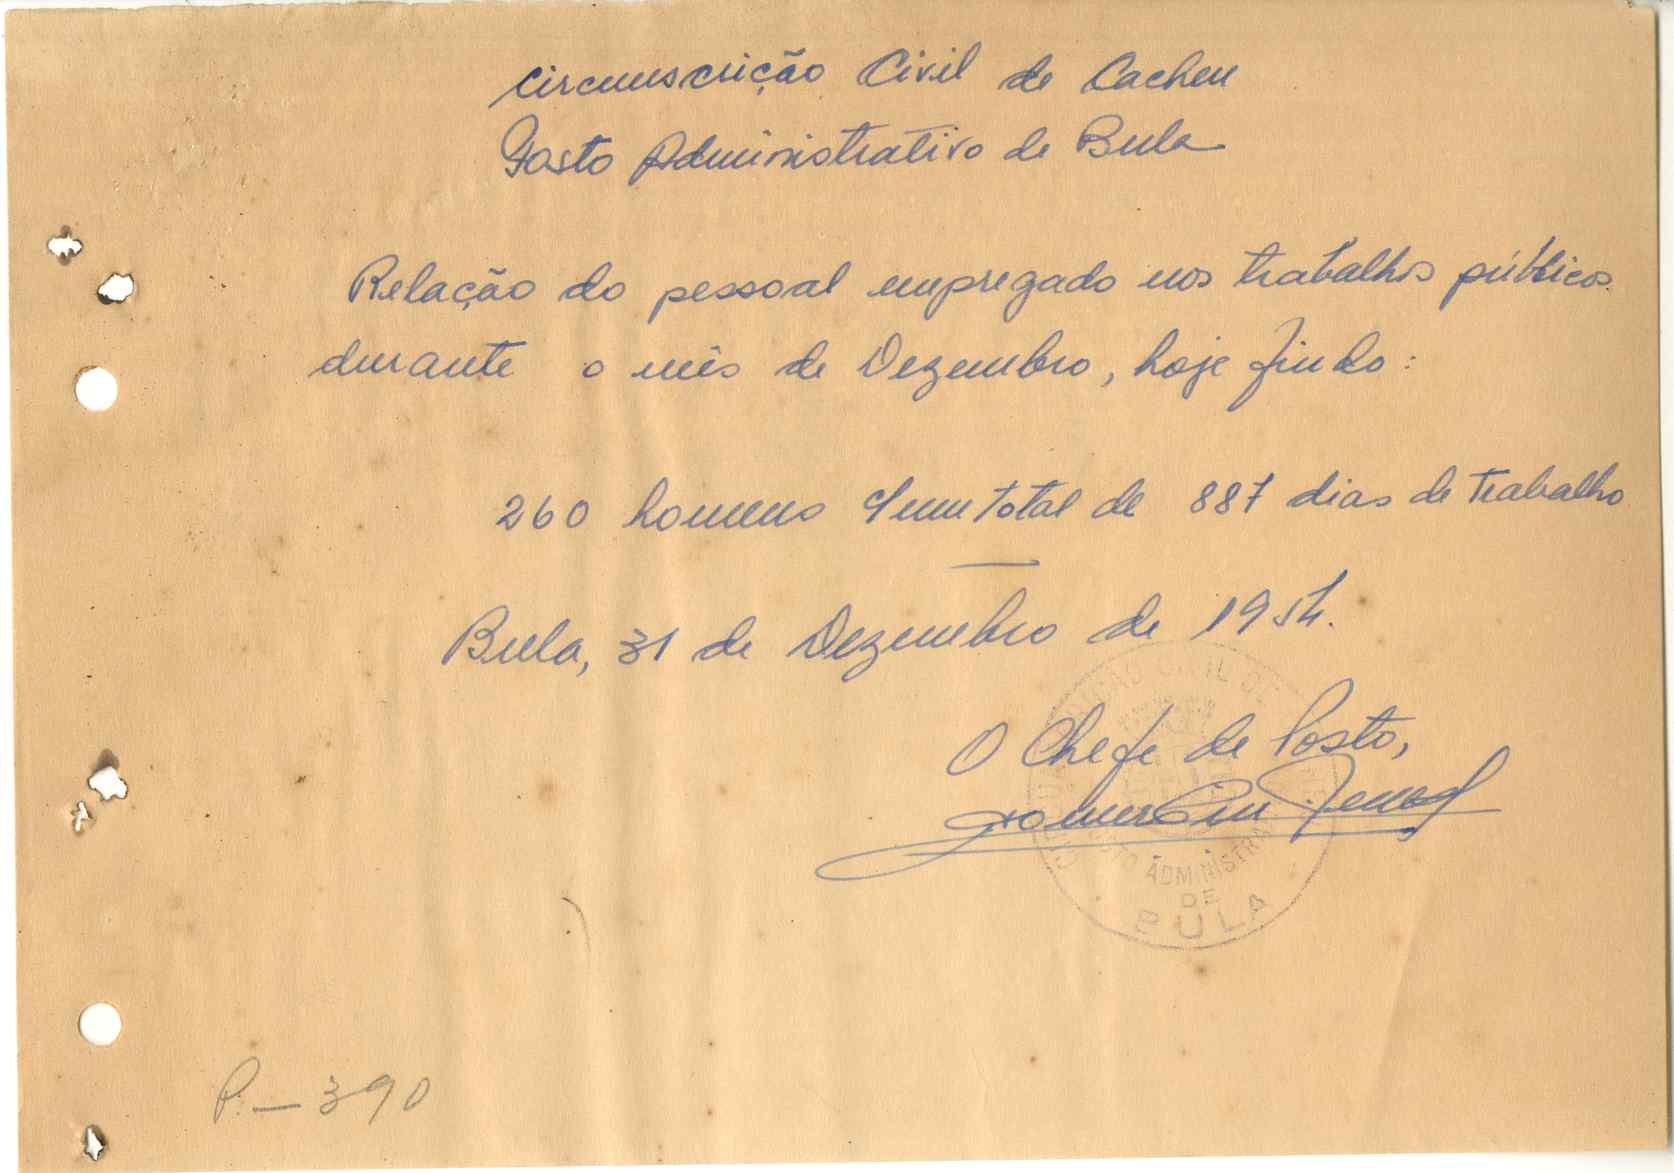 Circunscrição Civil de Cacheu
Posto Administrativo de Bula
Relação do pessoal empregado nos trabalhos públicos
durante o mês de Dezembro, hoje findo:
260 homens num total de 887 dias de trabalho
Bula, 31 de Dezembro de 1954.
O Chefe de Posto,
CIVIL DE
ADMINISTRA
DE
BULA
P-390